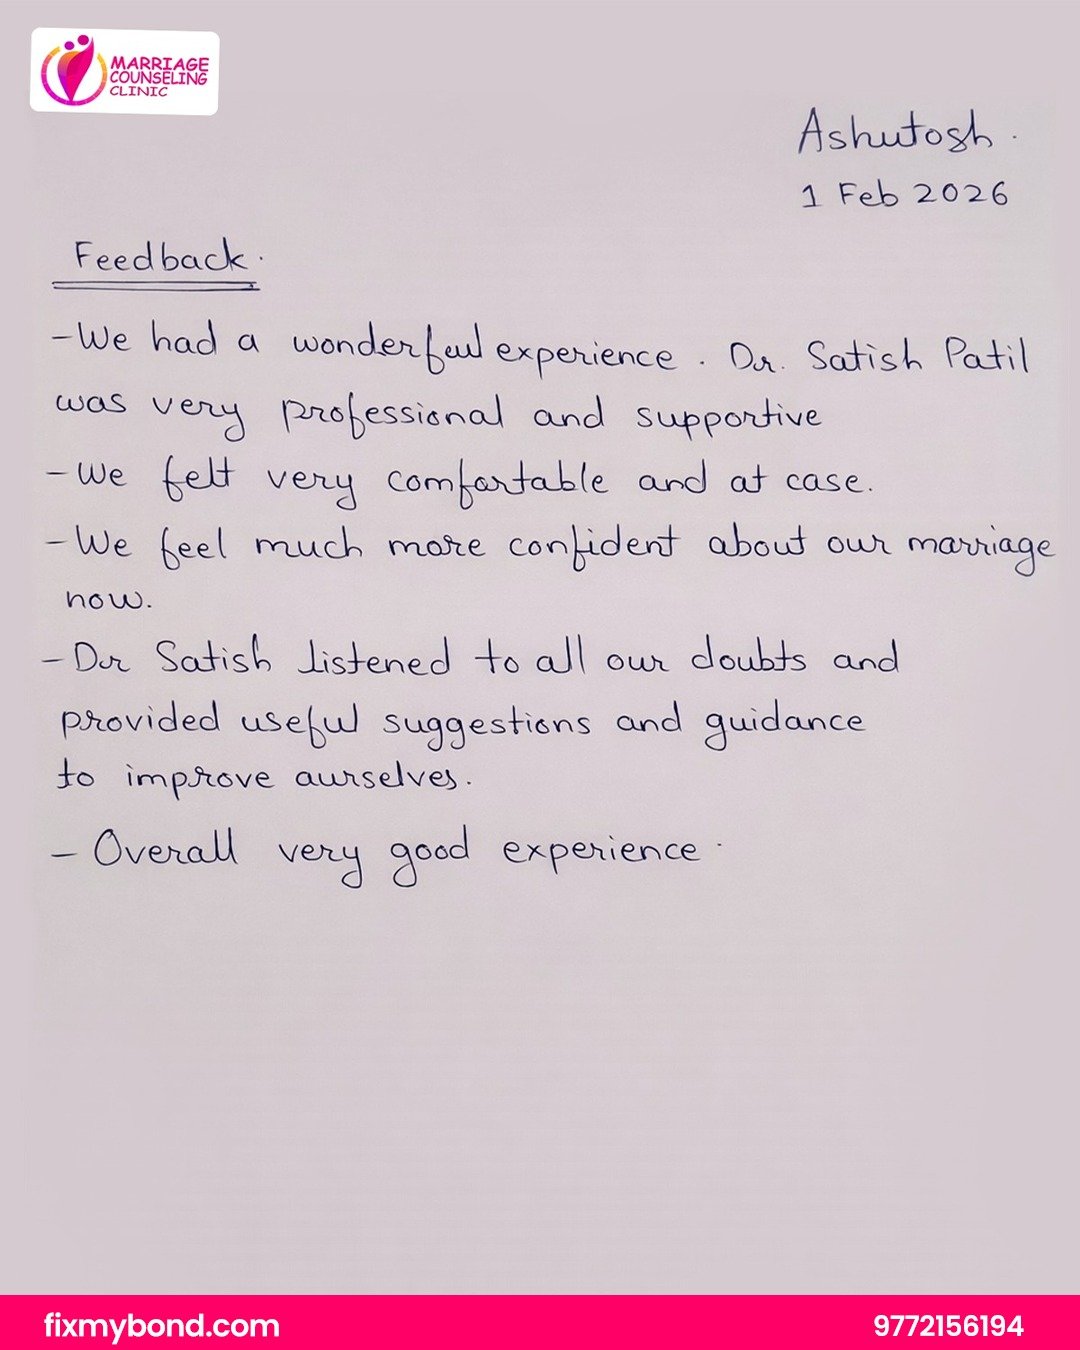 MARRIAGE
COUNSELING
CLINIC
Ashutosh.
1 Feb 2026
Feedback.
- We had a wonderful experience. Dr. Satish Patil
was very professional and supportive
- We felt very comfortable and at case.
- We feel much more confident about our marriage
now.
- Dr Satish listened to all our doubts and
provided useful suggestions and guidance
to improve aurselves.
- Overall very good experience.
fixmybond.com
9772156194